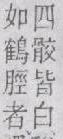 四骹皆白
如鶴脛者